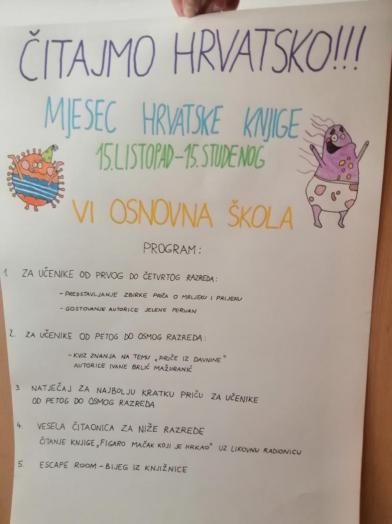 ČITAJMO HRVATSKO!!!
MJESEC HRVATSKE KNJIGE
15.LISTOPAD-15.STUDENOG
VI OSNOVNA ŠKOLA
PROGRAM:
1. ZA UČENIKE OD PRVOG DO ČETVRTOG RAZREDA:
- PREDSTAVLJANJE ZBIRKE PRIČA O MRLJEKU I PRLJEKU
- GOSTOVANJE AUTORICE JELENE PERVAN
2. ZA UČENIKE OD PETOG DO OSMOG RAZREDA:
- KVIZ ZNANJA NA TEMU „PRIČE IZ DAVNINE"
AUTORICE IVANE BRLIĆ MAŽURANIĆ
3. NATJEČAJ ZA NAJBOLJU KRATKU PRIČU ZA UČENIKE
OD PETOG DO OSMOG RAZREDA
4. VESELA ČITAONICA ZA NIŽE RAZREDE
ČITANJE KNJIGE „FIGARO MAČAK KOJI JE HRKAO" UZ LIKOVNU RADIONICU
5. ESCAPE ROOM - BIJEG IZ KNJIŽNICE